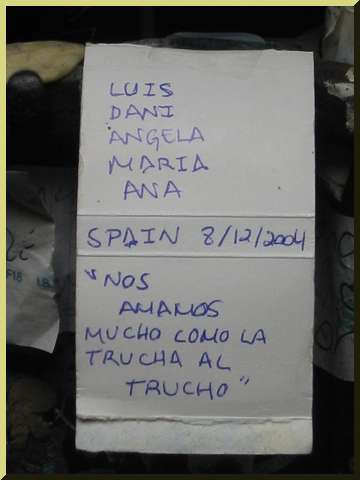 LUIS
DANI
ANGELA
MARIA
ANA
SPAIN 8/12/2004
"NOS
AMAMOS
MUCHO COMO LA
TRUCHA AL
TRUCHO"